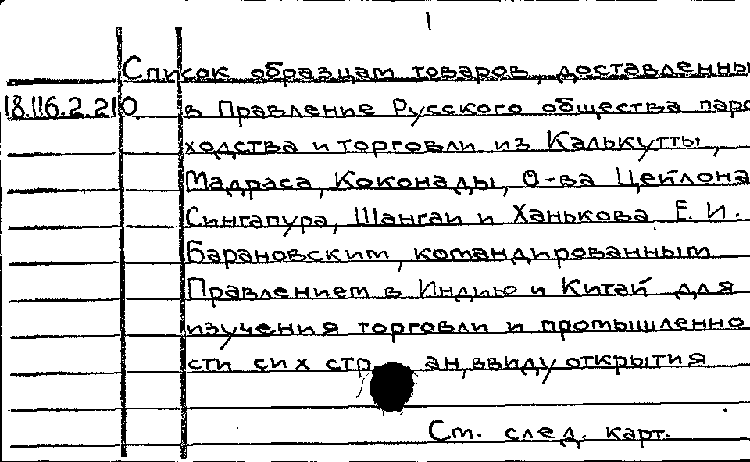 1
Список образцам товаров, доставленны
18.116.2.210 в Правление Русского общества паро
ходства и торговли из Калькутты,
Мадраса, Коконады, О-ва Цейлона
Сингапура, Шангаи и Ханькова Е. И.
Барановским, командированным
Правлением в Индию и Китай для
изучения торговли и промышленно
сти сих стр ан, ввиду открытия
См. след. карт.